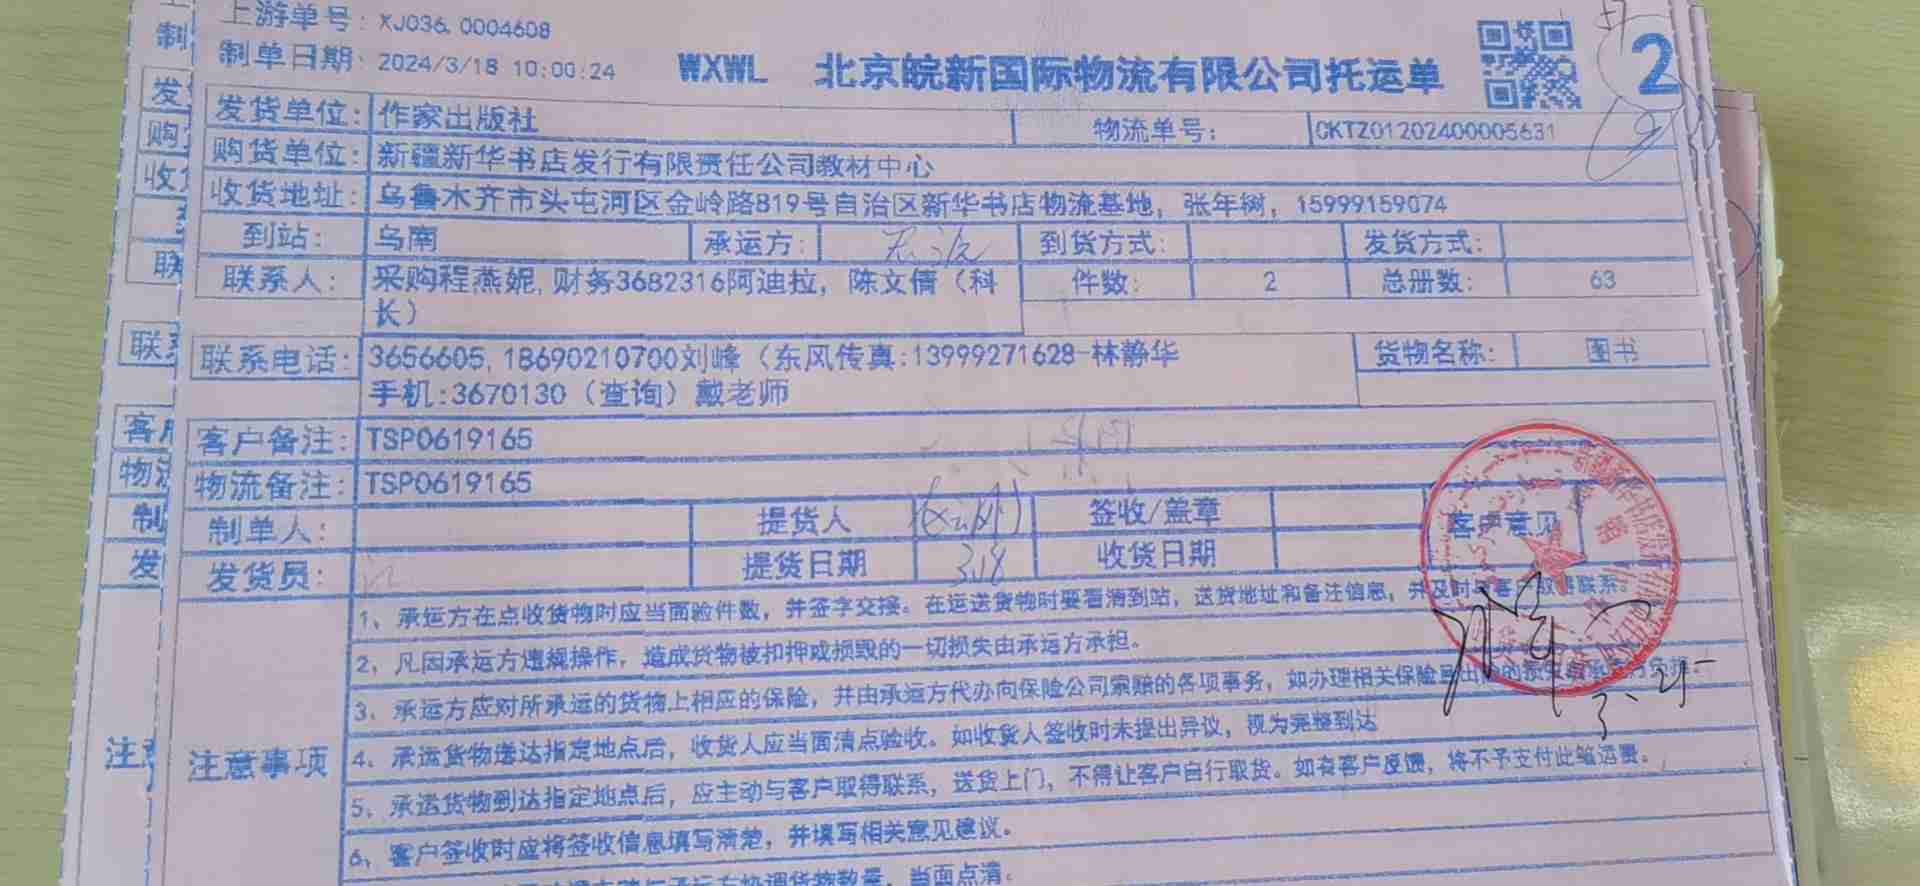 上游单号: XJ036.0004608
制单日期: 2024/3/18 10:00:24
WXWL 北京皖新国际物流有限公司托运单
2
发货单位: 作家出版社 物流单号: CKTZ01202400005631
购货单位: 新疆新华书店发行有限责任公司教材中心
收货地址: 乌鲁木齐市头屯河区金岭路819号自治区新华书店物流基地, 张年树, 15999159074
到站: 乌南 承运方: 到货方式: 发货方式:
联系人: 采购程燕妮, 财务3682316阿迪拉, 陈文倩 (科 件数: 2 总册数: 63
长)
联系电话: 3656605, 18690210700刘峰 (东风传真:13999271628-林静华 货物名称: 图书
手机:3670130 (查询) 戴老师
客户备注: TSP0619165
物流备注: TSP0619165
制单人: 提货人 签收/盖章 客户意见
发货员: 提货日期 3.18 收货日期
注意事项
1、承运方在点收货物时应当面验件数, 并签字交接。在运送货物时要看清到站, 送货地址和备注信息, 并及时与客户取得联系。
2、凡因承运方违规操作, 造成货物被扣押或损毁的一切损失由承运方承担。
3、承运方应对所承运的货物上相应的保险, 并由承运方代办向保险公司索赔的各项事务, 如办理相关保险
4、承运货物送达指定地点后, 收货人应当面清点验收。如收货人签收时未提出异议, 视为完整到达
5、承送货物到达指定地点后, 应主动与客户取得联系, 送货上门, 不得让客户自行取货。如有客户反馈, 将不予支付此笔运费。
6、客户签收时应将签收信息填写清楚, 并填写相关意见建议。
当面点清。